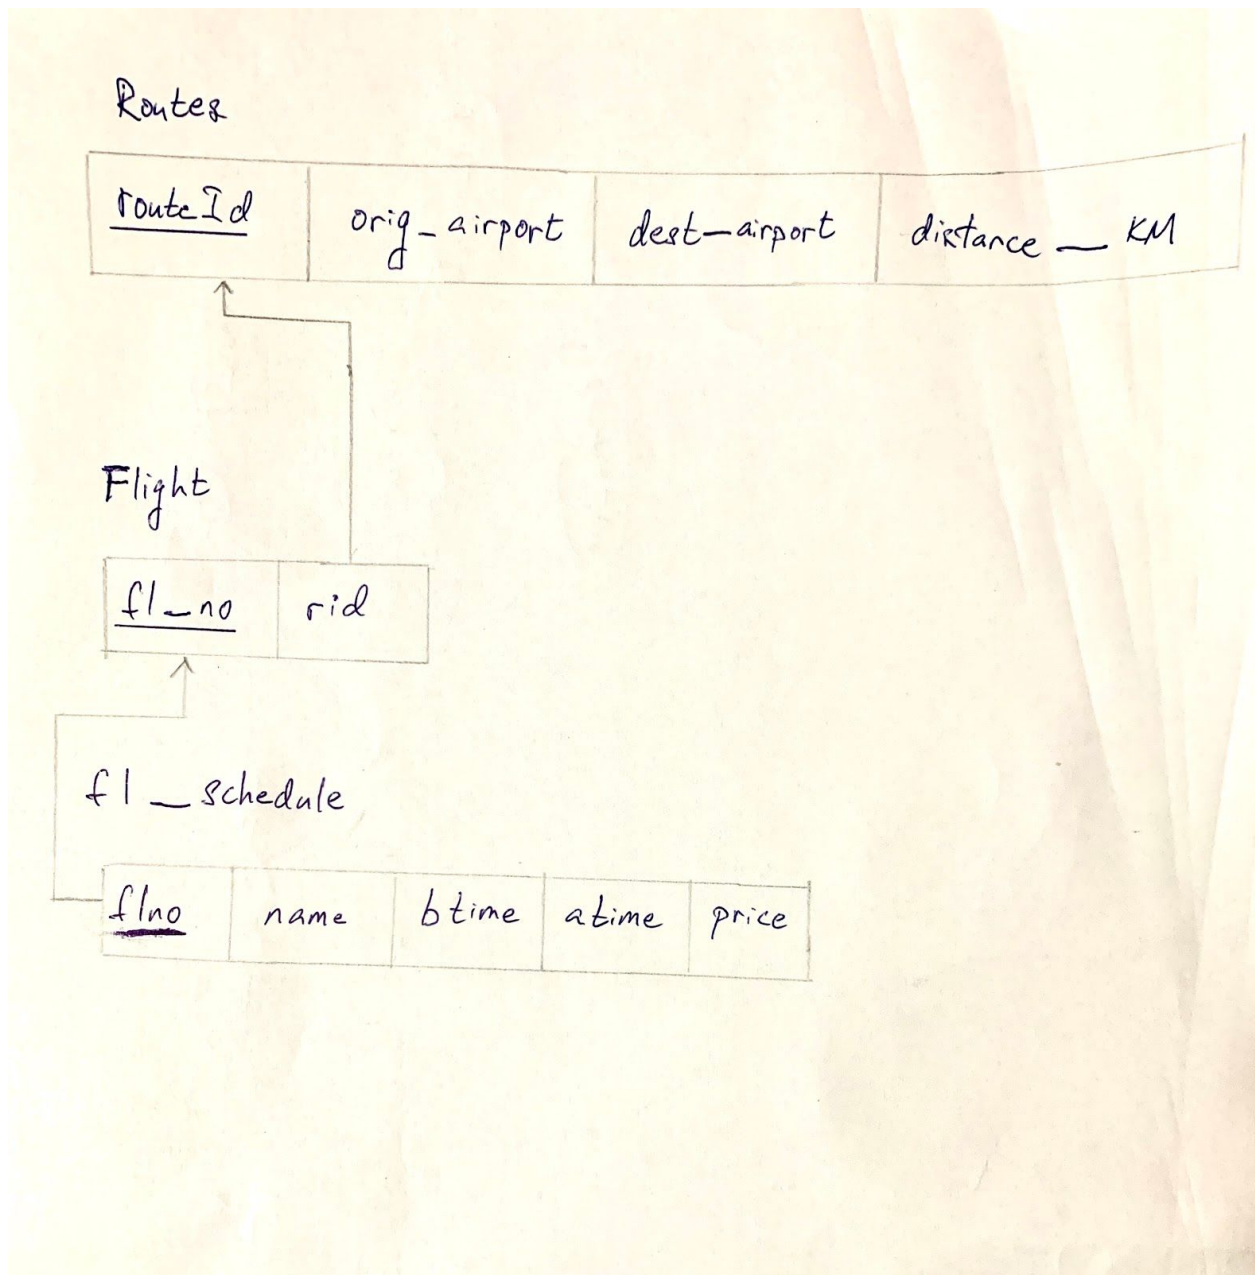 Routes
routeId orig_airport dest_airport distance_KM
Flight
fl_no rid
fl_schedule
flno name btime atime price